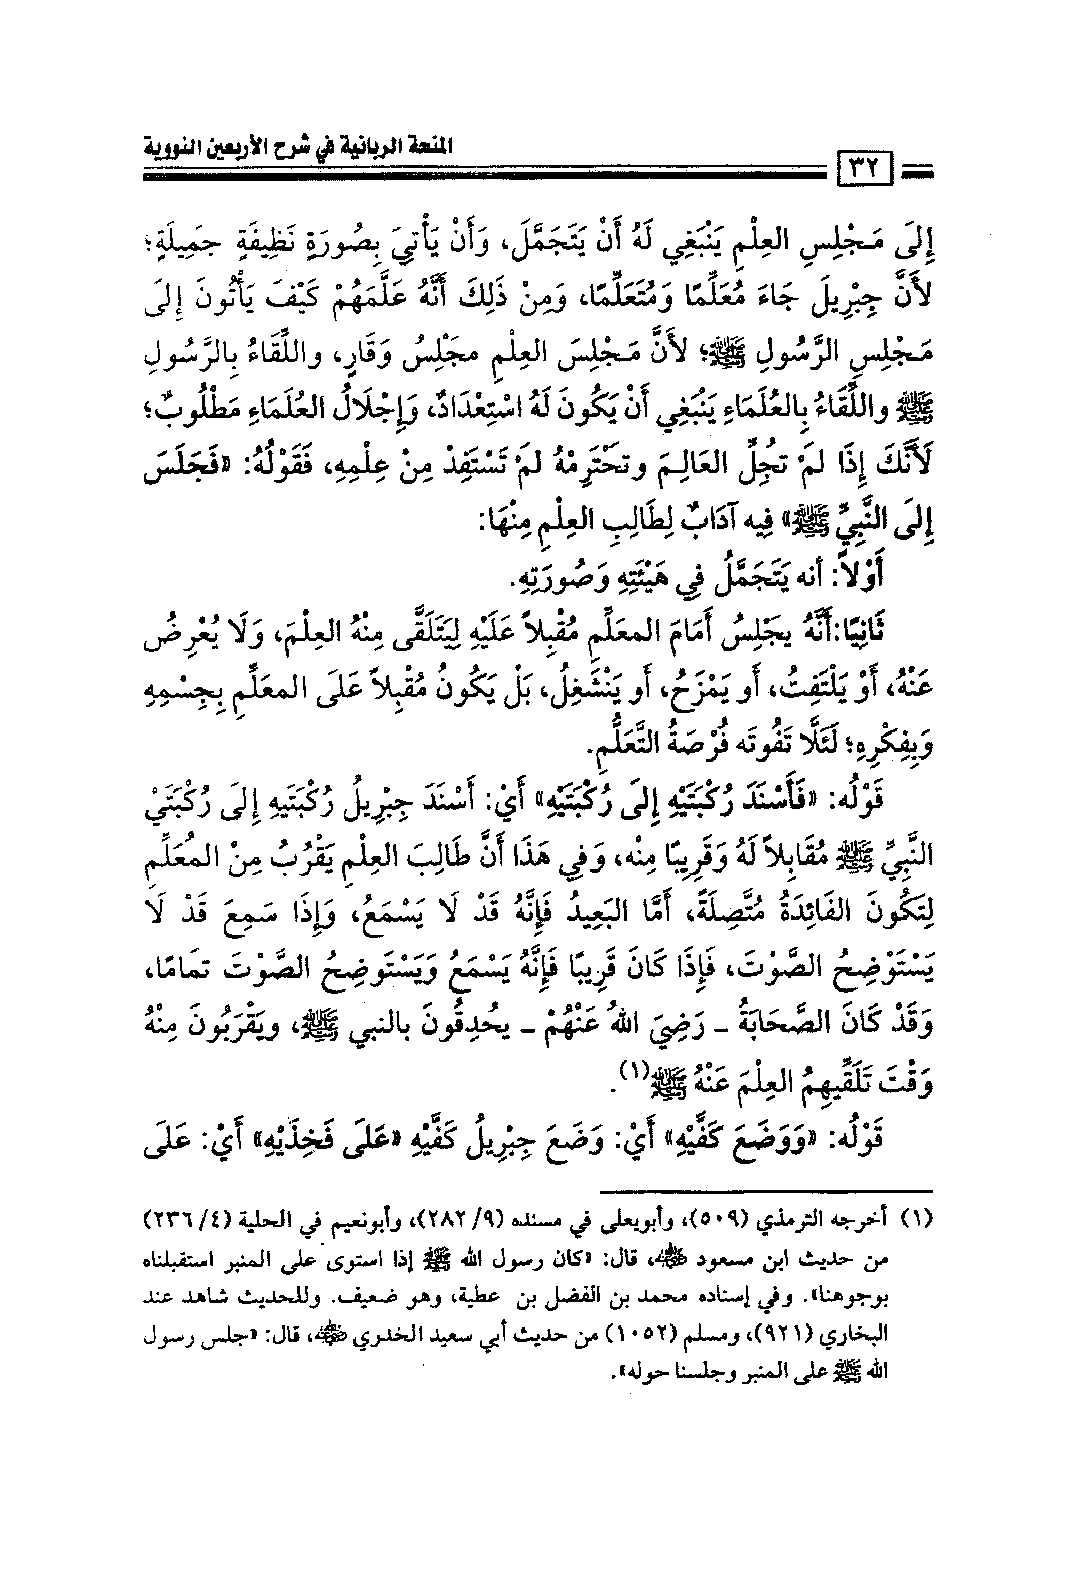 المنحة الربانية في شرح الأربعين النووية
٣٢
إِلَى مَجْلِسِ العِلْمِ يَنْبَغِي لَهُ أَنْ يَتَجَمَّلَ، وَأَنْ يَأْتِيَ بِصُورَةٍ نَظِيفَةٍ جَمِيلَةٍ؛
لأَنَّ جِبْرِيلَ جَاءَ مُعَلِّمًا وَمُتَعَلِّمًا، وَمِنْ ذَلِكَ أَنَّهُ عَلَّمَهُمْ كَيْفَ يَأْتُونَ إِلَى
مَجْلِسِ الرَّسُولِ ﷺ؛ لأَنَّ مَجْلِسَ العِلْمِ مَجْلِسُ وَقَارٍ، واللِّقَاءُ بِالرَّسُولِ
ﷺ واللِّقَاءُ بِالعُلَمَاءِ يَنْبَغِي أَنْ يَكُونَ لَهُ اسْتِعْدَادٌ، وَإِجْلَالُ العُلَمَاءِ مَطْلُوبٌ؛
لَأَنَّكَ إِذَا لَمْ تُجِلِّ العَالِمَ وتَحْتَرِمْهُ لَمْ تَسْتَفِدْ مِنْ عِلْمِهِ، فَقَوْلُهُ: «فَجَلَسَ
إِلَى النَّبِيِّ ﷺ» فِيه آدَابٌ لِطَالِبِ العِلْمِ مِنْهَا:
أَوْلاً: أنه يَتَجَمَّلُ فِي هَيْئَتِهِ وَصُورَتِهِ.
ثَانِيًا:أَنَّهُ يَجْلِسُ أَمَامَ المعَلِّمِ مُقْبِلاً عَلَيْهِ لِيَتَلَقَّى مِنْهُ العِلْمَ، وَلَا يُعْرِضُ
عَنْهُ، أَوْ يَلْتَفِتُ، أَو يَمْزَحُ، أَو يَنْشَغِلُ، بَلْ يَكُونُ مُقْبِلاً عَلَى المعَلِّمِ بِجِسْمِهِ
وَبِفِكْرِهِ؛ لَئَلَّا تَفُوتَه فُرْصَةُ التَّعَلُّمِ.
قَوْلُه: «فَأَسْنَدَ رُكْبَتَيْهِ إِلىَ رُكْبَتَيْهِ» أَيْ: أَسْنَدَ جِبْرِيلُ رُكْبَتَيهِ إِلَى رُكْبَتَيْ
النَّبِيِّ ﷺ مُقَابِلاً لَهُ وَقَرِيبًا مِنْه، وَفِي هَذَا أَنَّ طَالِبَ العِلْمِ يَقْرُبُ مِنْ المُعَلِّمِ
لِتَكُونَ الفَائِدَةُ مُتَّصِلَةً، أَمَّا البَعِيدُ فَإِنَّهُ قَدْ لَا يَسْمَعُ، وَإِذَا سَمِعَ قَدْ لَا
يَسْتَوْضِحُ الصَّوْتَ، فَإِذَا كَانَ قَرِيبًا فَإِنَّهُ يَسْمَعُ وَيَسْتَوضِحُ الصَّوْتَ تمامًا،
وَقَدْ كَانَ الصَّحَابَةُ ـ رَضِيَ اللهُ عَنْهُمْ ـ يحْدِقُونَ بالنبي ﷺ، ويَقْرَبُونَ مِنْهُ
وَقْتَ تَلَقِّيهِمُ العِلْمَ عَنْهُ ﷺ(١).
قَوْلُه: «وَوَضَعَ كَفَّيْهِ» أَيْ: وَضَعَ جِبْرِيلُ كَفَّيْهِ «عَلَى فَخِذَيْهِ» أَيْ: عَلَى
(١) أخرجه الترمذي (٥٠٩)، وأبويعلى في مسنده (٩/ ٢٨٢)، وأبونعيم في الحلية (٤/ ٢٣٦)
من حديث ابن مسعود رضي الله عنه، قال: «كان رسول الله ﷺ إذا استوى على المنبر استقبلناه
بوجوهنا». وفي إسناده محمد بن الفضل بن عطية، وهو ضعيف. وللحديث شاهد عند
البخاري (٩٢١)، ومسلم (١٠٥٢) من حديث أبي سعيد الخدري رضي الله عنه، قال: «جلس رسول
الله ﷺ على المنبر وجلسنا حوله».